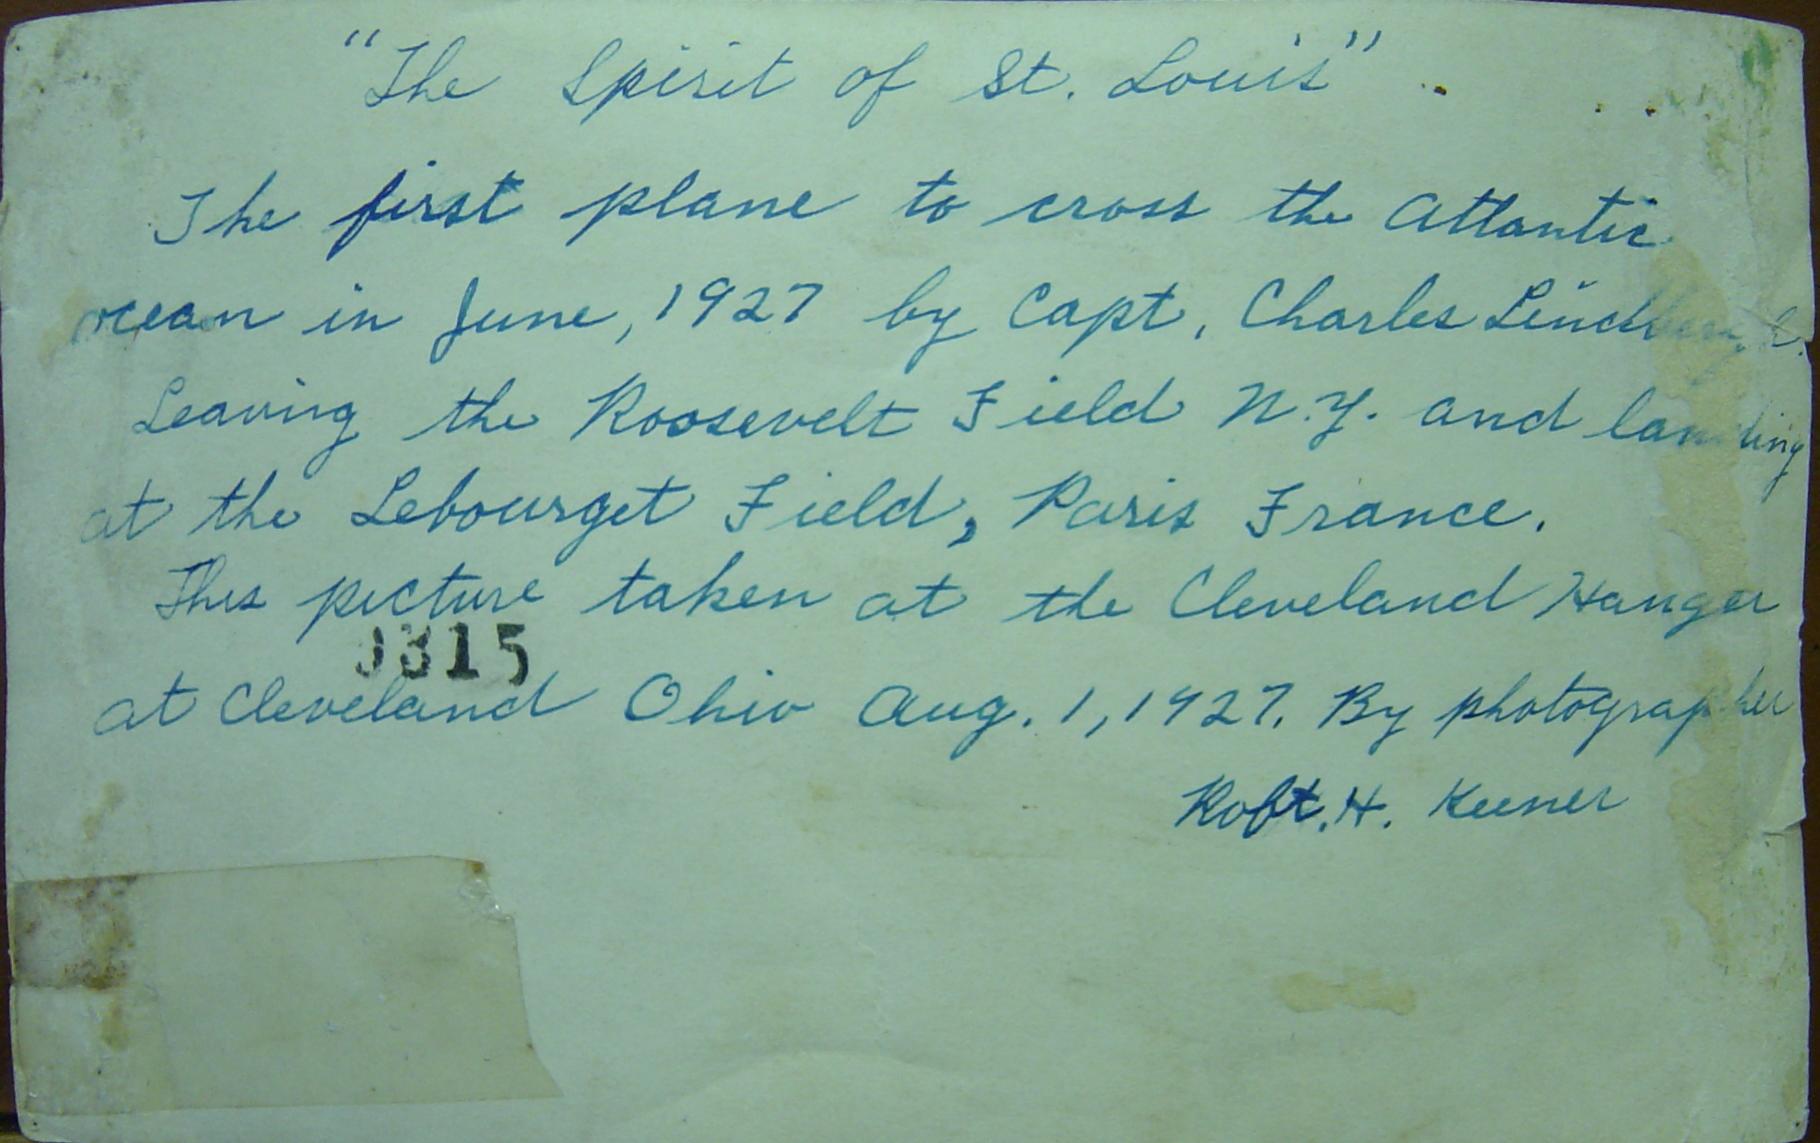 "The Spirit of St. Louis"
The first plane to cross the Atlantic
ocean in June, 1927 by Capt. Charles Lindbergh.
Leaving the Roosevelt Field N.Y. and landing
at the Lebourget Field, Paris France.
This picture taken at the Cleveland Hanger
3315
at Cleveland Ohio Aug. 1, 1927. By photographer
Robt. H. Keener